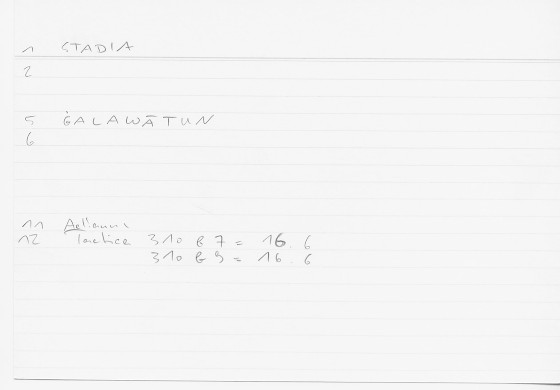 1 STADIA
2
5 ĠALAWĀTUN
6
11 Aeliani
12 Tactica 310 B 7 = 16.6
310 B 9 = 16.6